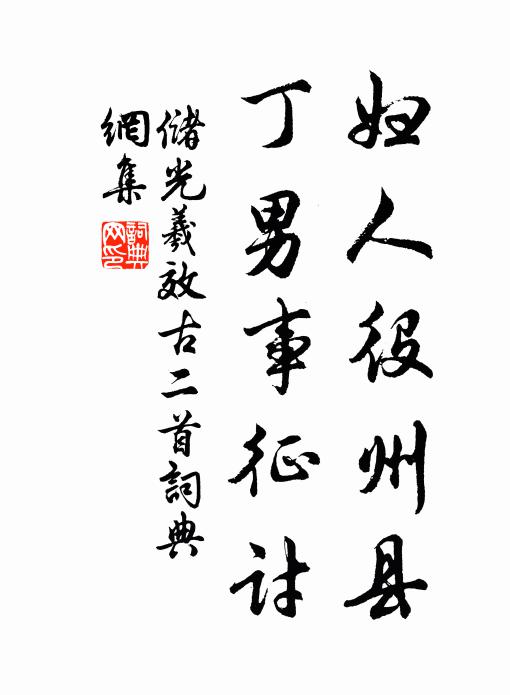 妇人役州县
丁男事征讨
儲光羲效古二首詞典
網集
詞典
网印